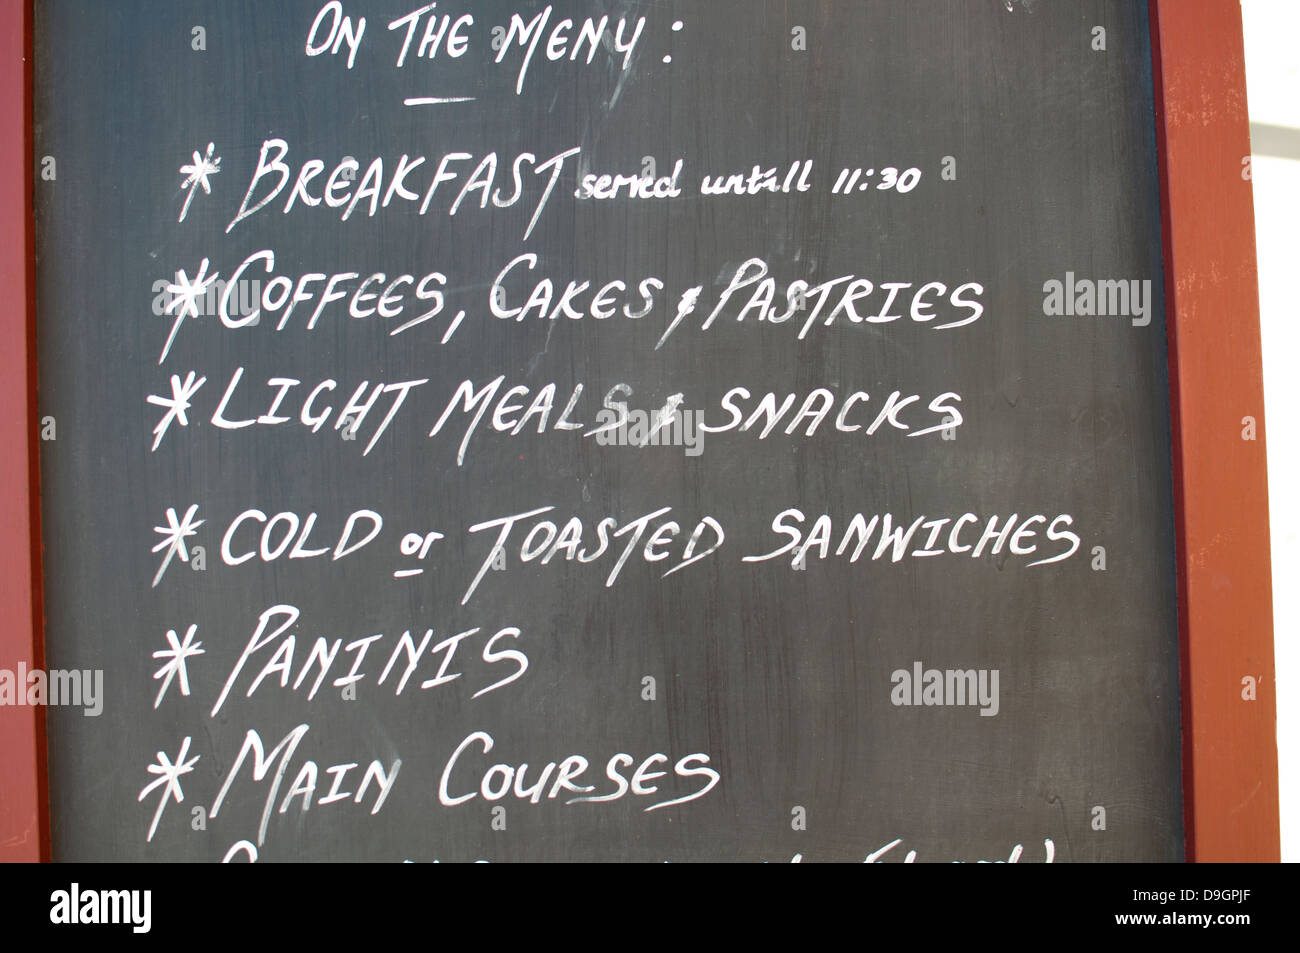 ON THE MENU:
* BREAKFAST served untill 11:30
* COFFEES, CAKES & PASTRIES
* LIGHT MEALS & SNACKS
* COLD or TOASTED SANWICHES
* PANINIS
* MAIN COURSES
alamy
alamy
alamy
alamy
Image ID: D9GPJF
www.alamy.com